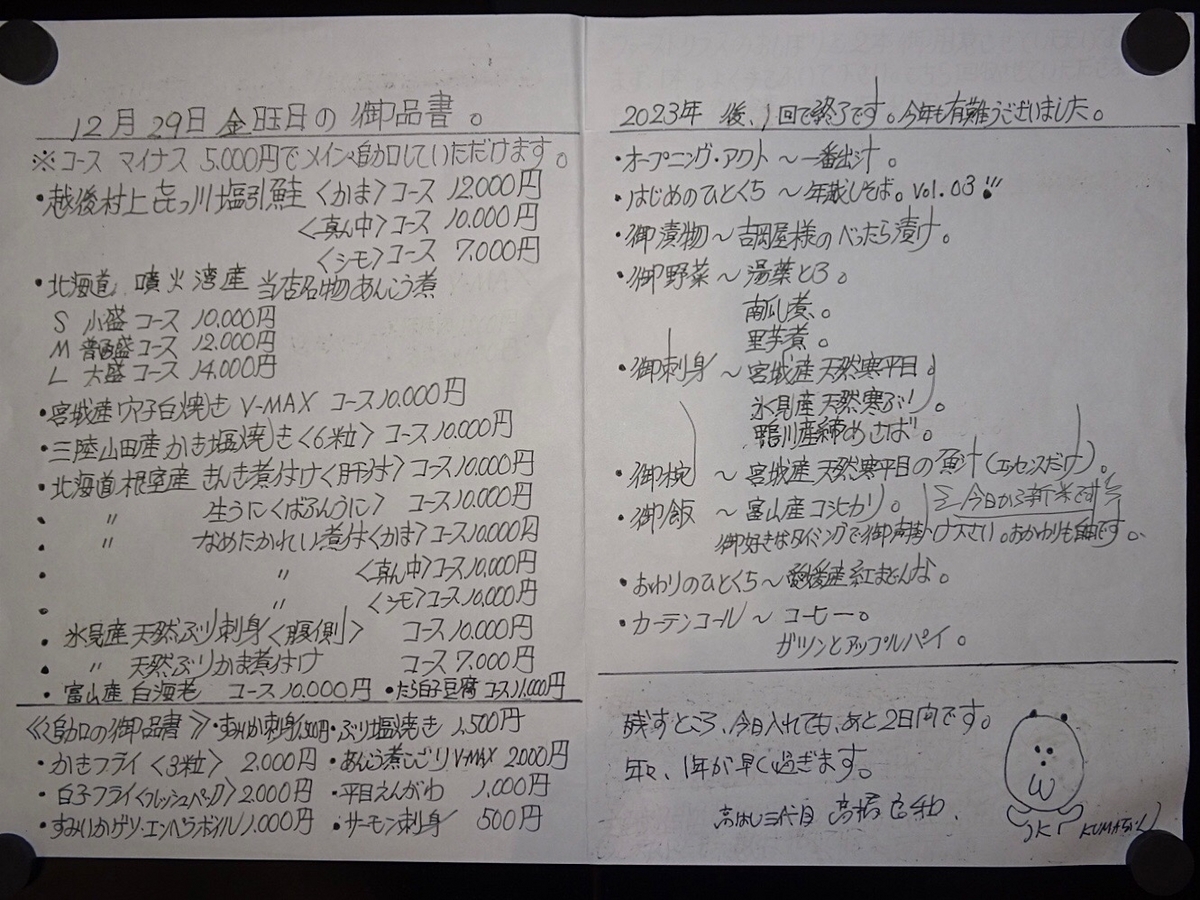 12月29日金曜日の御品書。
※コース マイナス 5.000円でメイン追加していただけます。
・越後村上㐂っ川塩引鮭〈かま〉コース 12.000円
〈真ん中〉コース 10.000円
〈シモ〉コース 7.000円
・北海道 噴火湾産 当店名物あんこう煮
S 小盛コース 10.000円
M 普通盛コース 12.000円
L 大盛コース 14.000円
・宮城産穴子白焼き V-MAX コース10.000円
・三陸山田産かき塩焼き〈6粒〉コース10.000円
・北海道根室産 きんき煮付け〈肝付〉コース10.000円
・ 〃 生うに〈ばふんうに〉 コース10.000円
・ 〃 なめたかれい煮付〈かま〉コース10.000円
・ 〃 〈真ん中〉コース10.000円
・ 〃 〈シモ〉コース10.000円
・氷見産天然ぶり刺身〈腹側〉 コース10.000円
・ 〃 天然ぶりかま煮付け コース7.000円
・富山産 白海老 コース10.000円 ・たら白子豆腐 コース11.000円
《追加の御品書》・すみいか刺身1,300円・ぶり塩焼き 1,500円
・かきフライ〈3粒〉 2.000円 ・あんこう煮こごり V-MAX 2000円
・白子フライ〈フレッシュパック〉2000円 ・平目えんがわ 1,000円
・すみいかゲソ・エンペラボイル1,000円 ・サーモン刺身 500円
2023年 後、1回で終了です。今年も有難うございました。
・オープニング・アクト～一番出汁。
・はじめのひとくち～年越しそば。Vol.03!!
・御漬物～吉岡屋様のべったら漬け。
・御野菜～湯葉とろ。
南瓜煮。
里芋煮。
・御刺身～宮城産天然寒平目。
氷見産天然寒ぶり。
鴨川産締めさば。
・御椀 ～宮城産天然寒平目の魚汁(エッセンスだけ)。
・御飯 ～富山産コシヒカリ。 今日から新米です
御好きなタイミングで御声掛け下さい。おかわりも自由です。
・おわりのひとくち～愛媛産紅まどんな。
・カーテンコール～コーヒー。
ガツンとアップルパイ。
残すところ、今日入れても、あと2日間です。
年々、1年が早く過ぎます。
高はし三代目 高橋
KUMA